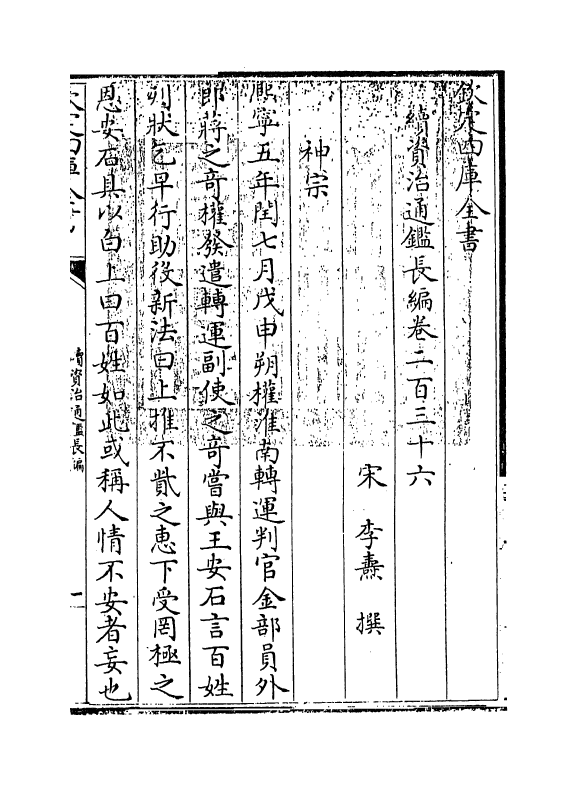 欽定四庫全書
續資治通鑑長編卷二百三十六
宋 李燾 撰
神宗
熈寧五年閏七月戊申朔權淮南轉運判官金部員外
郎蔣之奇權發遣轉運副使之奇嘗與王安石言百姓
列狀乞早行助役新法曰上推不貲之惠下受罔極之
恩安石具以白上曰百姓如此或稱人情不安者妄也
欽定四庫全書
續資治通鑑長編
一